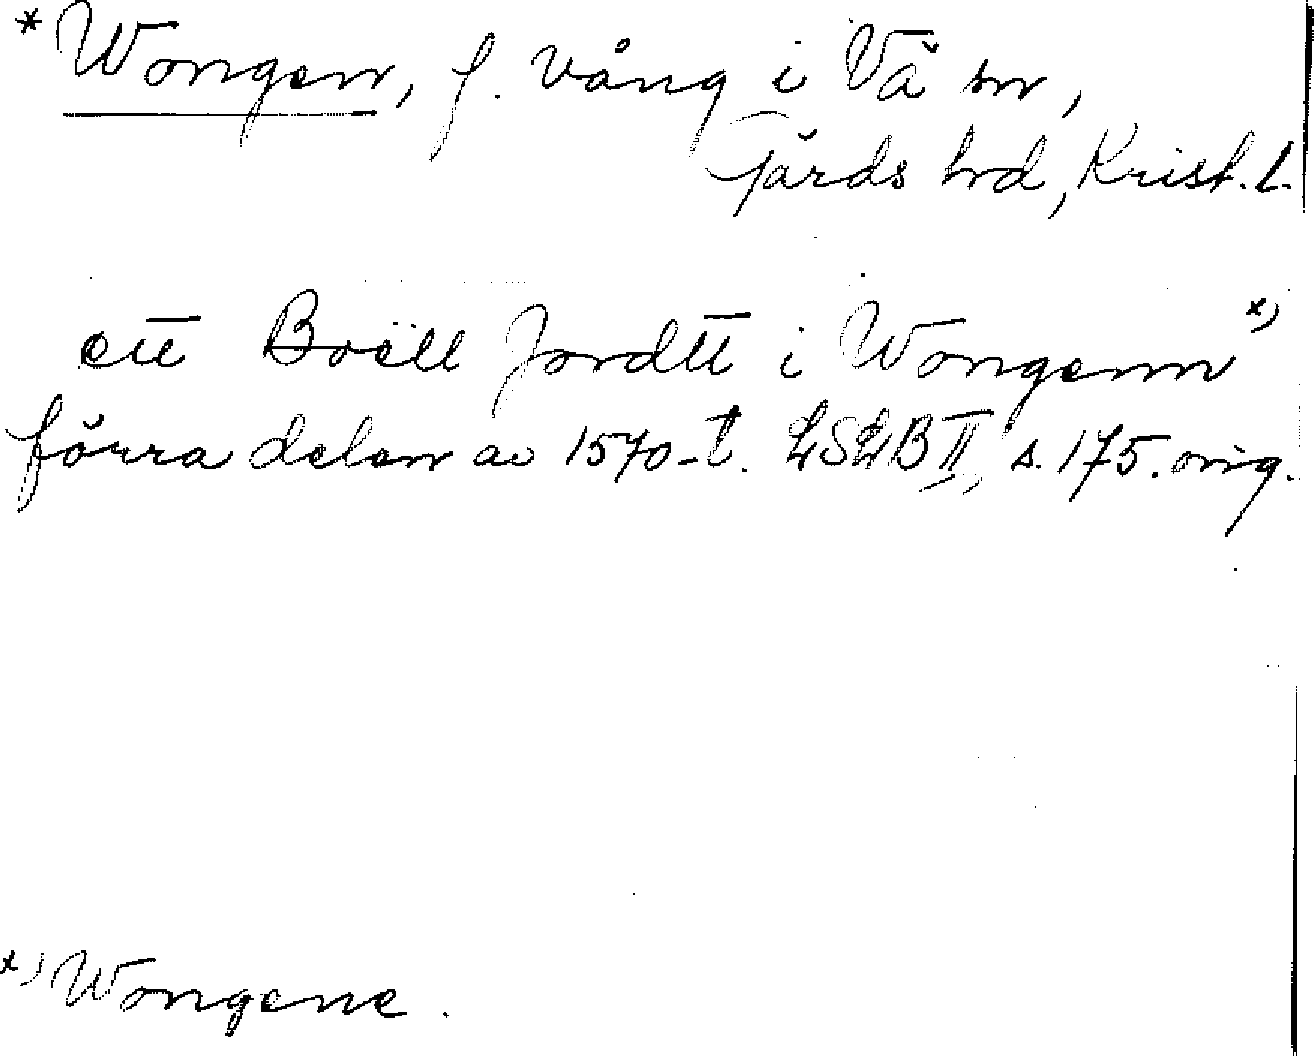 *Wongen, f. vång i Vä sn,
Gärds hd, Krist. l.
ett Boëll Jordtt i Wongenn x)
förra delen av 1570-t. LSLB II, s. 175. orig.
x) Wongene.